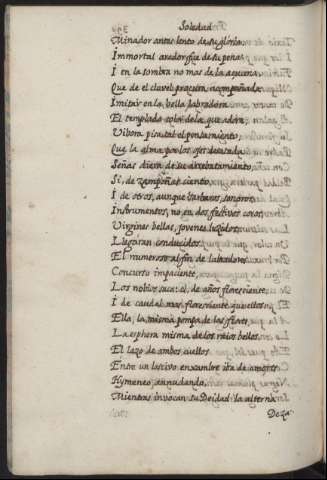 Soledad
Minador antes lento de su gloria
Immortal arador fue de su pena;
I en la sombra no mas de la açucena,
Que de el clavel procura acompañada
Imitar en la bella labradora
El templado color de la que adora,
Vibora pisa tal el pensamiento,
Que la alma por los ojos desatada
Señas diera de su arrebatamiento;
Si, de zampoñas ciento,
I de otros, aunque barbaros, sonoros
Instrumentos, no en dos festivos coros,
Virgines bellas, jovenes luzidos,
Llegaran conducidos.
El numeroso al fin de labradores
Concurso impaciente,
Los novios saca: el, de años floreciente,
I de caudal mas floreciente que ellos:
Ella, la misma pompa de las flores,
La esphera misma de los raios bellos.
El lazo de ambos cuellos
Entre un lascivo enxambre iba de amores
Hymeneo añudando,
Mientras invocan su Deidad la alterna
De za